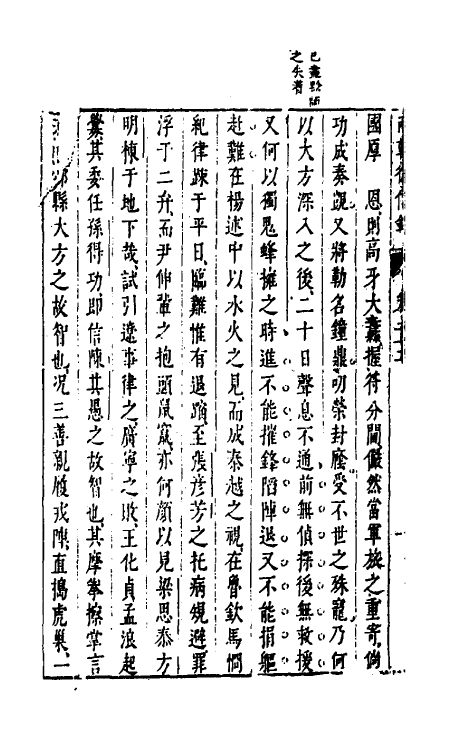 已盡黔師
之失著
國厚　恩則高牙大纛握符分閫儼然當軍旅之重寄倘
功成奏凱又將勒名鐘鼎叨榮封廕受不世之殊寵乃何
以大方深入之後二十日聲息不通前無偵探後無救援
又何以獨鬼蜂擁之時進不能摧鋒陷陣退又不能捐軀
赴難在楊述中以水火之見而成秦越之視在魯欽馬㷜
紀律疎于平日臨難惟有退縮至張彥芳之托病規避罪
浮于二弁而尹伸輩之抱頭鼠竄亦何顏以見梁思泰方
明棟于地下哉試引遼事律之廣寧之敗王化貞孟浪起
釁其委任孫得功即信陳其愚之故智也其摩拳擦掌言
縣大方之故智也况三善親履戎陣直搗虎巢一